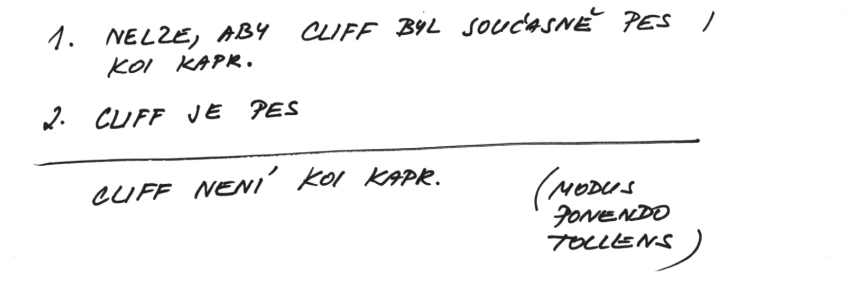 1. NELZE, ABY CLIFF BYL SOUČASNĚ PES I
KOI KAPR.
2. CLIFF JE PES
CLIFF NENÍ KOI KAPR. (MODUS
PONENDO
TOLLENS)